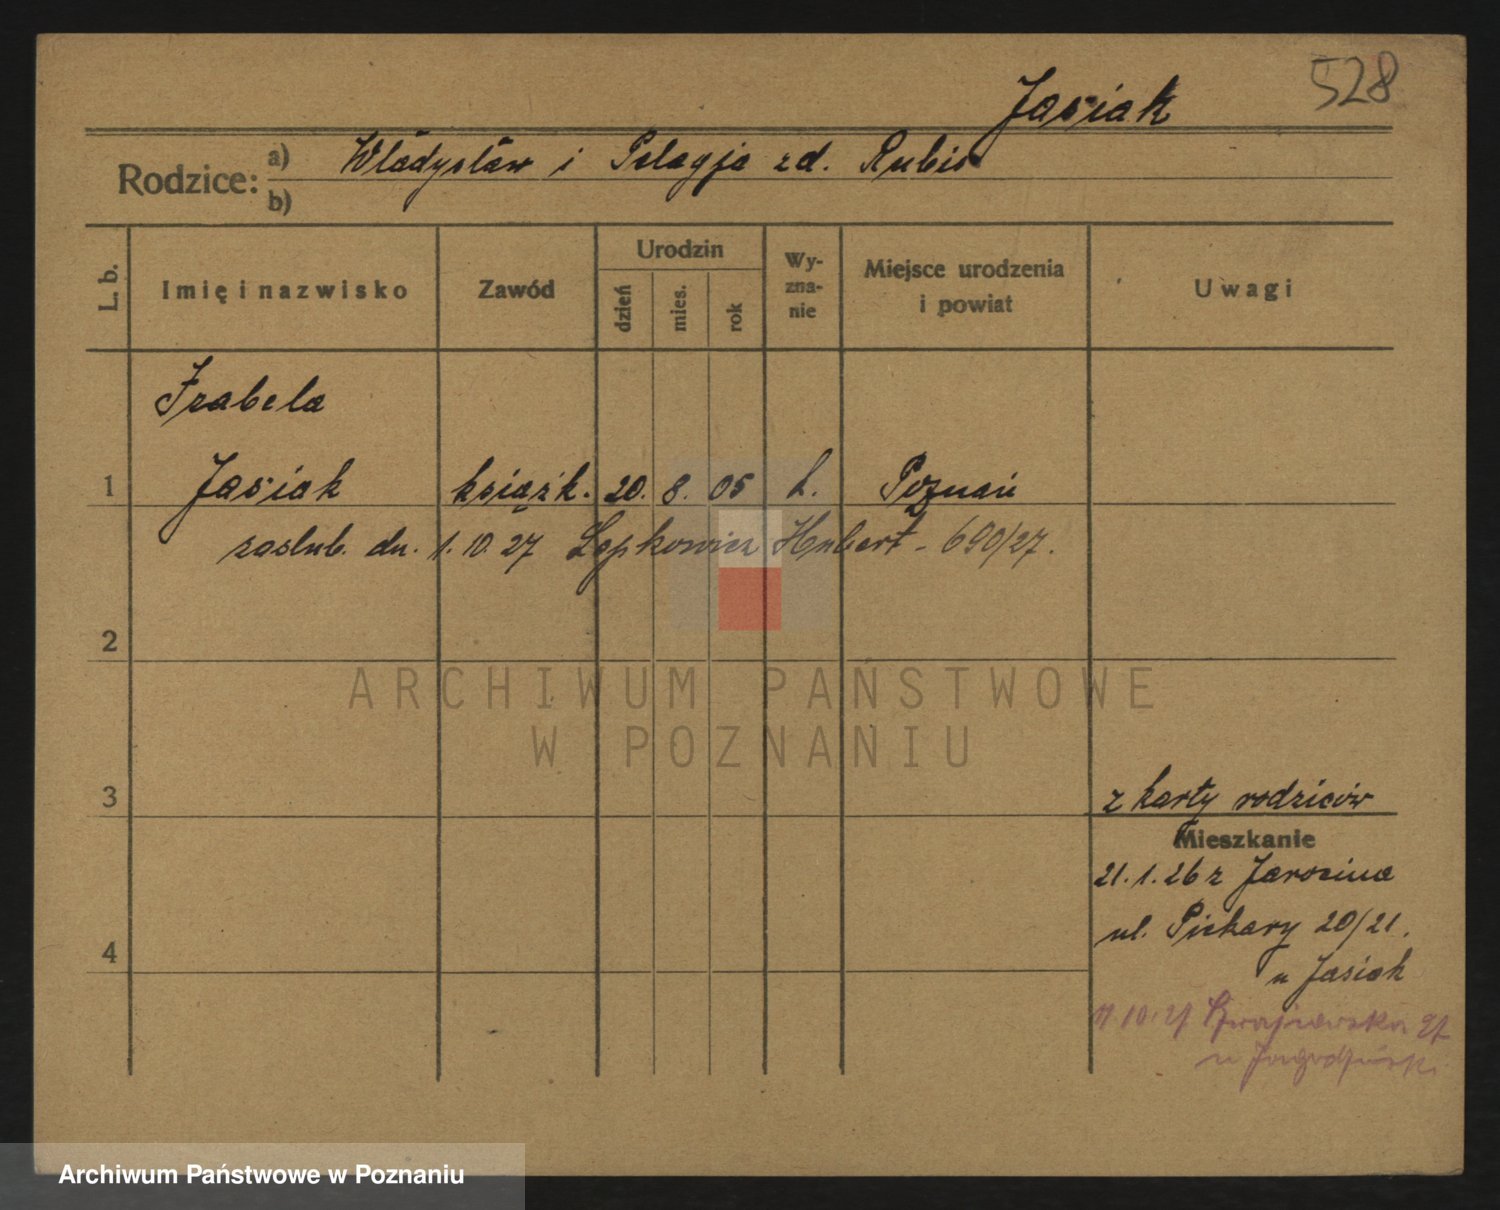 528
Jasiak
Rodzice: a) Władysław i Pelagja zd. Rubis
b)
L. b. Imię i nazwisko Zawód Urodzin dzień mies. rok Wyznanie Miejsce urodzenia i powiat Uwagi
Izabela
1 Jasiak książk. 20. 8. 05 k. Poznań
zaślub. dn. 1.10.27 Łepkowicz Hubert - 690/27.
2
ARCHIWUM PAŃSTWOWE
W POZNANIU
3 z karty rodziców
Mieszkanie
21.1.26 z Jarocina
ul. Piekary 20/21.
4 u Jasiak
u
Archiwum Państwowe w Poznaniu